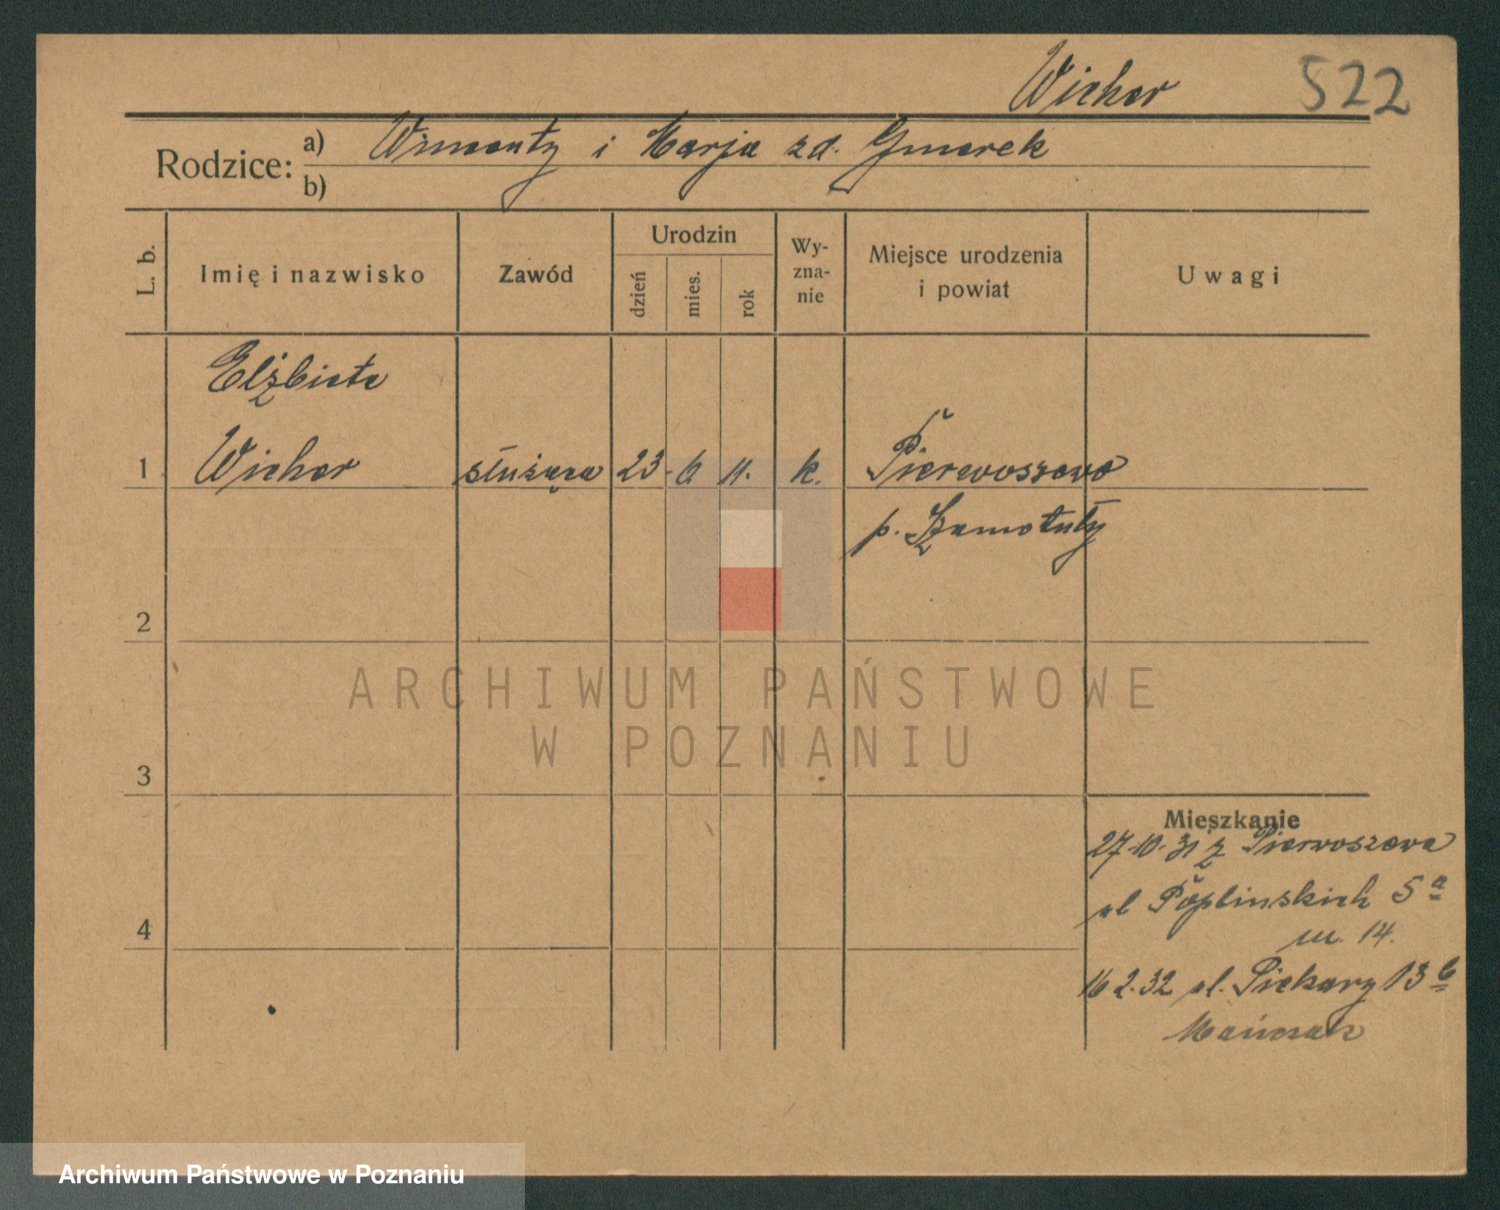 Wicher 522
Rodzice: a) Wincenty i Marja zd. Gmerek
b)
L. b. Imię i nazwisko Zawód Urodzin dzień mies. rok Wy-zna-nie Miejsce urodzenia i powiat Uwagi
Elżbieta
1 Wicher służąca 23. 6 11. k. Pierwoszewo
p. Szamotuły
2
ARCHIWUM PAŃSTWOWE
W POZNANIU
3
Mieszkanie
27.10.31 z Pierwoszewa
ul Poplińskich 5 a
4
m. 14.
16 2.32 ul. Piekary 13 b
Mańczak
Archiwum Państwowe w Poznaniu